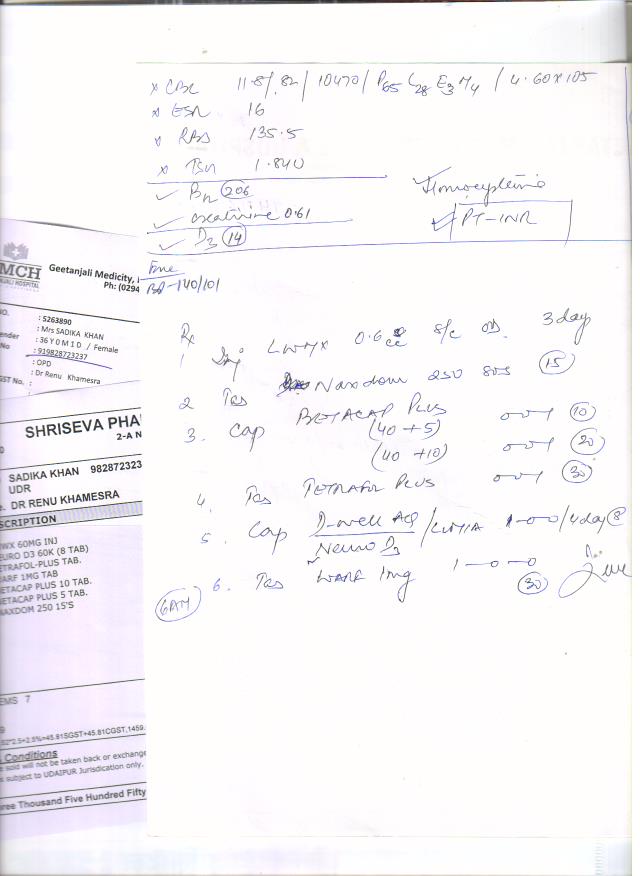 x CBC 11.8/.82/10470/P65 L28 E3 M4/4.60x105
x ESR 16
x RBS 135.5
x TSH 1.840
B12 206
creatinine 0.61
D3 14
Homocysteine
PT-INR
BP-140/101
Rx
1 Inj LMWX 0.6cc S/C OD. 3 day
2 Tab Naxdom 250 SOS 15
3. Cap BETACAP PLUS
(40+5) 0-0-1 10
(40+10) 0-0-1 20
4. Tab TETRAFOL PLUS 0-0-1 30
5. Cap Neuro D3 1-0-0/4 day 8
6. Tab WARF 1mg 1-0-0 30
6AM
MCH
NJALI HOSPITAL
Geetanjali Medicity,
Ph: (0294
NO. : 5263890
: Mrs SADIKA KHAN
ender : 36 Y 0 M 1 D / Female
No : 919828723237
: OPD
: Dr Renu Khamesra
GST No. :
SHRISEVA PHA
2-A N
SADIKA KHAN 982872323
UDR
. DR RENU KHAMESRA
SCRIPTION
WX 60MG INJ
EURO D3 60K (8 TAB)
ETRAFOL-PLUS TAB.
ARF 1MG TAB
ETACAP PLUS 10 TAB.
ETACAP PLUS 5 TAB.
AXDOM 250 15'S
EMS 7
.52*2.5+2.5%=45.81SGST+45.81CGST,1459.
Conditions
sold will not be taken back or exchange
s subject to UDAIPUR Jurisdication only.
ree Thousand Five Hundred Fifty